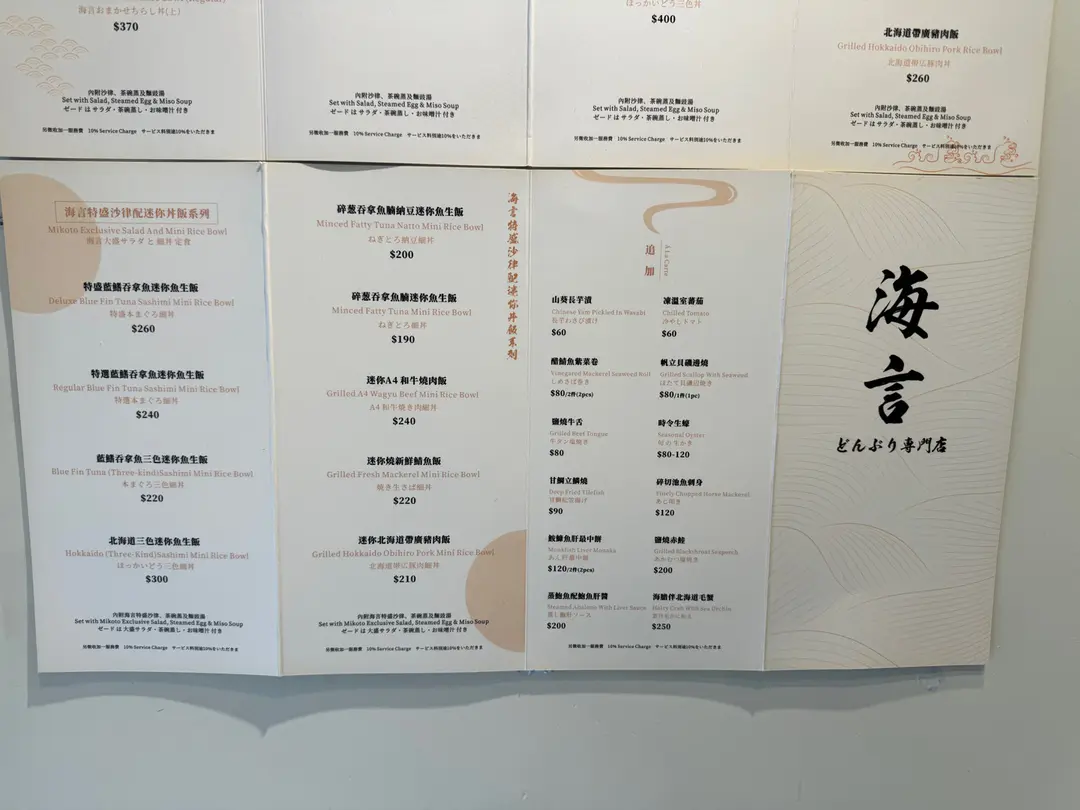 海言おまかせちらし丼(上)
$370
內附沙律、茶碗蒸及麵豉湯
Set with Salad, Steamed Egg & Miso Soup
ゼードはサラダ・茶碗蒸し・お味噌汁 付き
另徵收加一服務費 10% Service Charge サービス料別途10%をいただきます
內附沙律、茶碗蒸及麵豉湯
Set with Salad, Steamed Egg & Miso Soup
ゼードはサラダ・茶碗蒸し・お味噌汁 付き
另徵收加一服務費 10% Service Charge サービス料別途10%をいただきます
ほっかいどう三色丼
$400
內附沙律、茶碗蒸及麵豉湯
Set with Salad, Steamed Egg & Miso Soup
ゼードはサラダ・茶碗蒸し・お味噌汁 付き
另徵收加一服務費 10% Service Charge サービス料別途10%をいただきます
北海道帶廣豬肉飯
Grilled Hokkaido Obihiro Pork Rice Bowl
北海道帯広豚肉丼
$260
內附沙律、茶碗蒸及麵豉湯
Set with Salad, Steamed Egg & Miso Soup
ゼードはサラダ・茶碗蒸し・お味噌汁 付き
另徵收加一服務費 10% Service Charge サービス料別途10%をいただきます
海言特盛沙律配迷你丼飯系列
Mikoto Exclusive Salad And Mini Rice Bowl
海言大盛サラダ と 細丼 定食
特盛藍鰭吞拿魚迷你魚生飯
Deluxe Blue Fin Tuna Sashimi Mini Rice Bowl
特盛本まぐろ細丼
$260
特選藍鰭吞拿魚迷你魚生飯
Regular Blue Fin Tuna Sashimi Mini Rice Bowl
特選本まぐろ細丼
$240
藍鰭吞拿魚三色迷你魚生飯
Blue Fin Tuna (Three-kind)Sashimi Mini Rice Bowl
本まぐろ三色細丼
$220
北海道三色迷你魚生飯
Hokkaido (Three-Kind)Sashimi Mini Rice Bowl
ほっかいどう三色細丼
$300
內附海言特盛沙律、茶碗蒸及麵豉湯
Set with Mikoto Exclusive Salad, Steamed Egg & Miso Soup
ゼードは 大盛サラダ・茶碗蒸し・お味噌汁 付き
另徵收加一服務費 10% Service Charge サービス料別途10%をいただきます
海言特盛沙律配迷你丼飯系列
碎葱吞拿魚腩納豆迷你魚生飯
Minced Fatty Tuna Natto Mini Rice Bowl
ねぎとろ納豆細丼
$200
碎葱吞拿魚腩迷你魚生飯
Minced Fatty Tuna Mini Rice Bowl
ねぎとろ細丼
$190
迷你A4 和牛燒肉飯
Grilled A4 Wagyu Beef Mini Rice Bowl
A4 和牛焼き肉細丼
$240
迷你燒新鮮鯖魚飯
Grilled Fresh Mackerel Mini Rice Bowl
焼き生さば細丼
$220
迷你北海道帶廣豬肉飯
Grilled Hokkaido Obihiro Pork Mini Rice Bowl
北海道帯広豚肉細丼
$210
內附海言特盛沙律、茶碗蒸及麵豉湯
Set with Mikoto Exclusive Salad, Steamed Egg & Miso Soup
ゼードは 大盛サラダ・茶碗蒸し・お味噌汁 付き
另徵收加一服務費 10% Service Charge サービス料別途10%をいただきます
追加
A La Carte
山葵長芋漬
Chinese Yam Pickled In Wasabi
長芋わさび漬け
$60
凍溫室蕃茄
Chilled Tomato
冷やしトマト
$60
醋鯖魚紫菜卷
Vinegared Mackerel Seaweed Roll
しめさば巻き
$80/2件(2pcs)
帆立貝磯邊燒
Grilled Scallop With Seaweed
ほたて貝磯辺焼き
$80/1件(1pc)
鹽燒牛舌
Grilled Beef Tongue
牛タン塩焼き
$80
時令生蠔
Seasonal Oyster
旬の生かき
$80-120
甘鯛立鱗燒
Deep Fried Tilefish
$90
碎切池魚刺身
Finely Chopped Horse Mackerel
あじ叩き
$120
鮟鱇魚肝最中餅
Monkfish Liver Monaka
あん肝最中餅
$120/2件(2pcs)
鹽燒赤鯥
Grilled Blackthroat Seaperch
$200
蒸鮑魚配鮑魚肝醬
Steamed Abalone With Liver Sauce
蒸し鮑肝ソース
$200
海膽伴北海道毛蟹
Hairy Crab With Sea Urchin
$250
另徵收加一服務費 10% Service Charge サービス料別途10%をいただきます
海言
どんぶり専門店